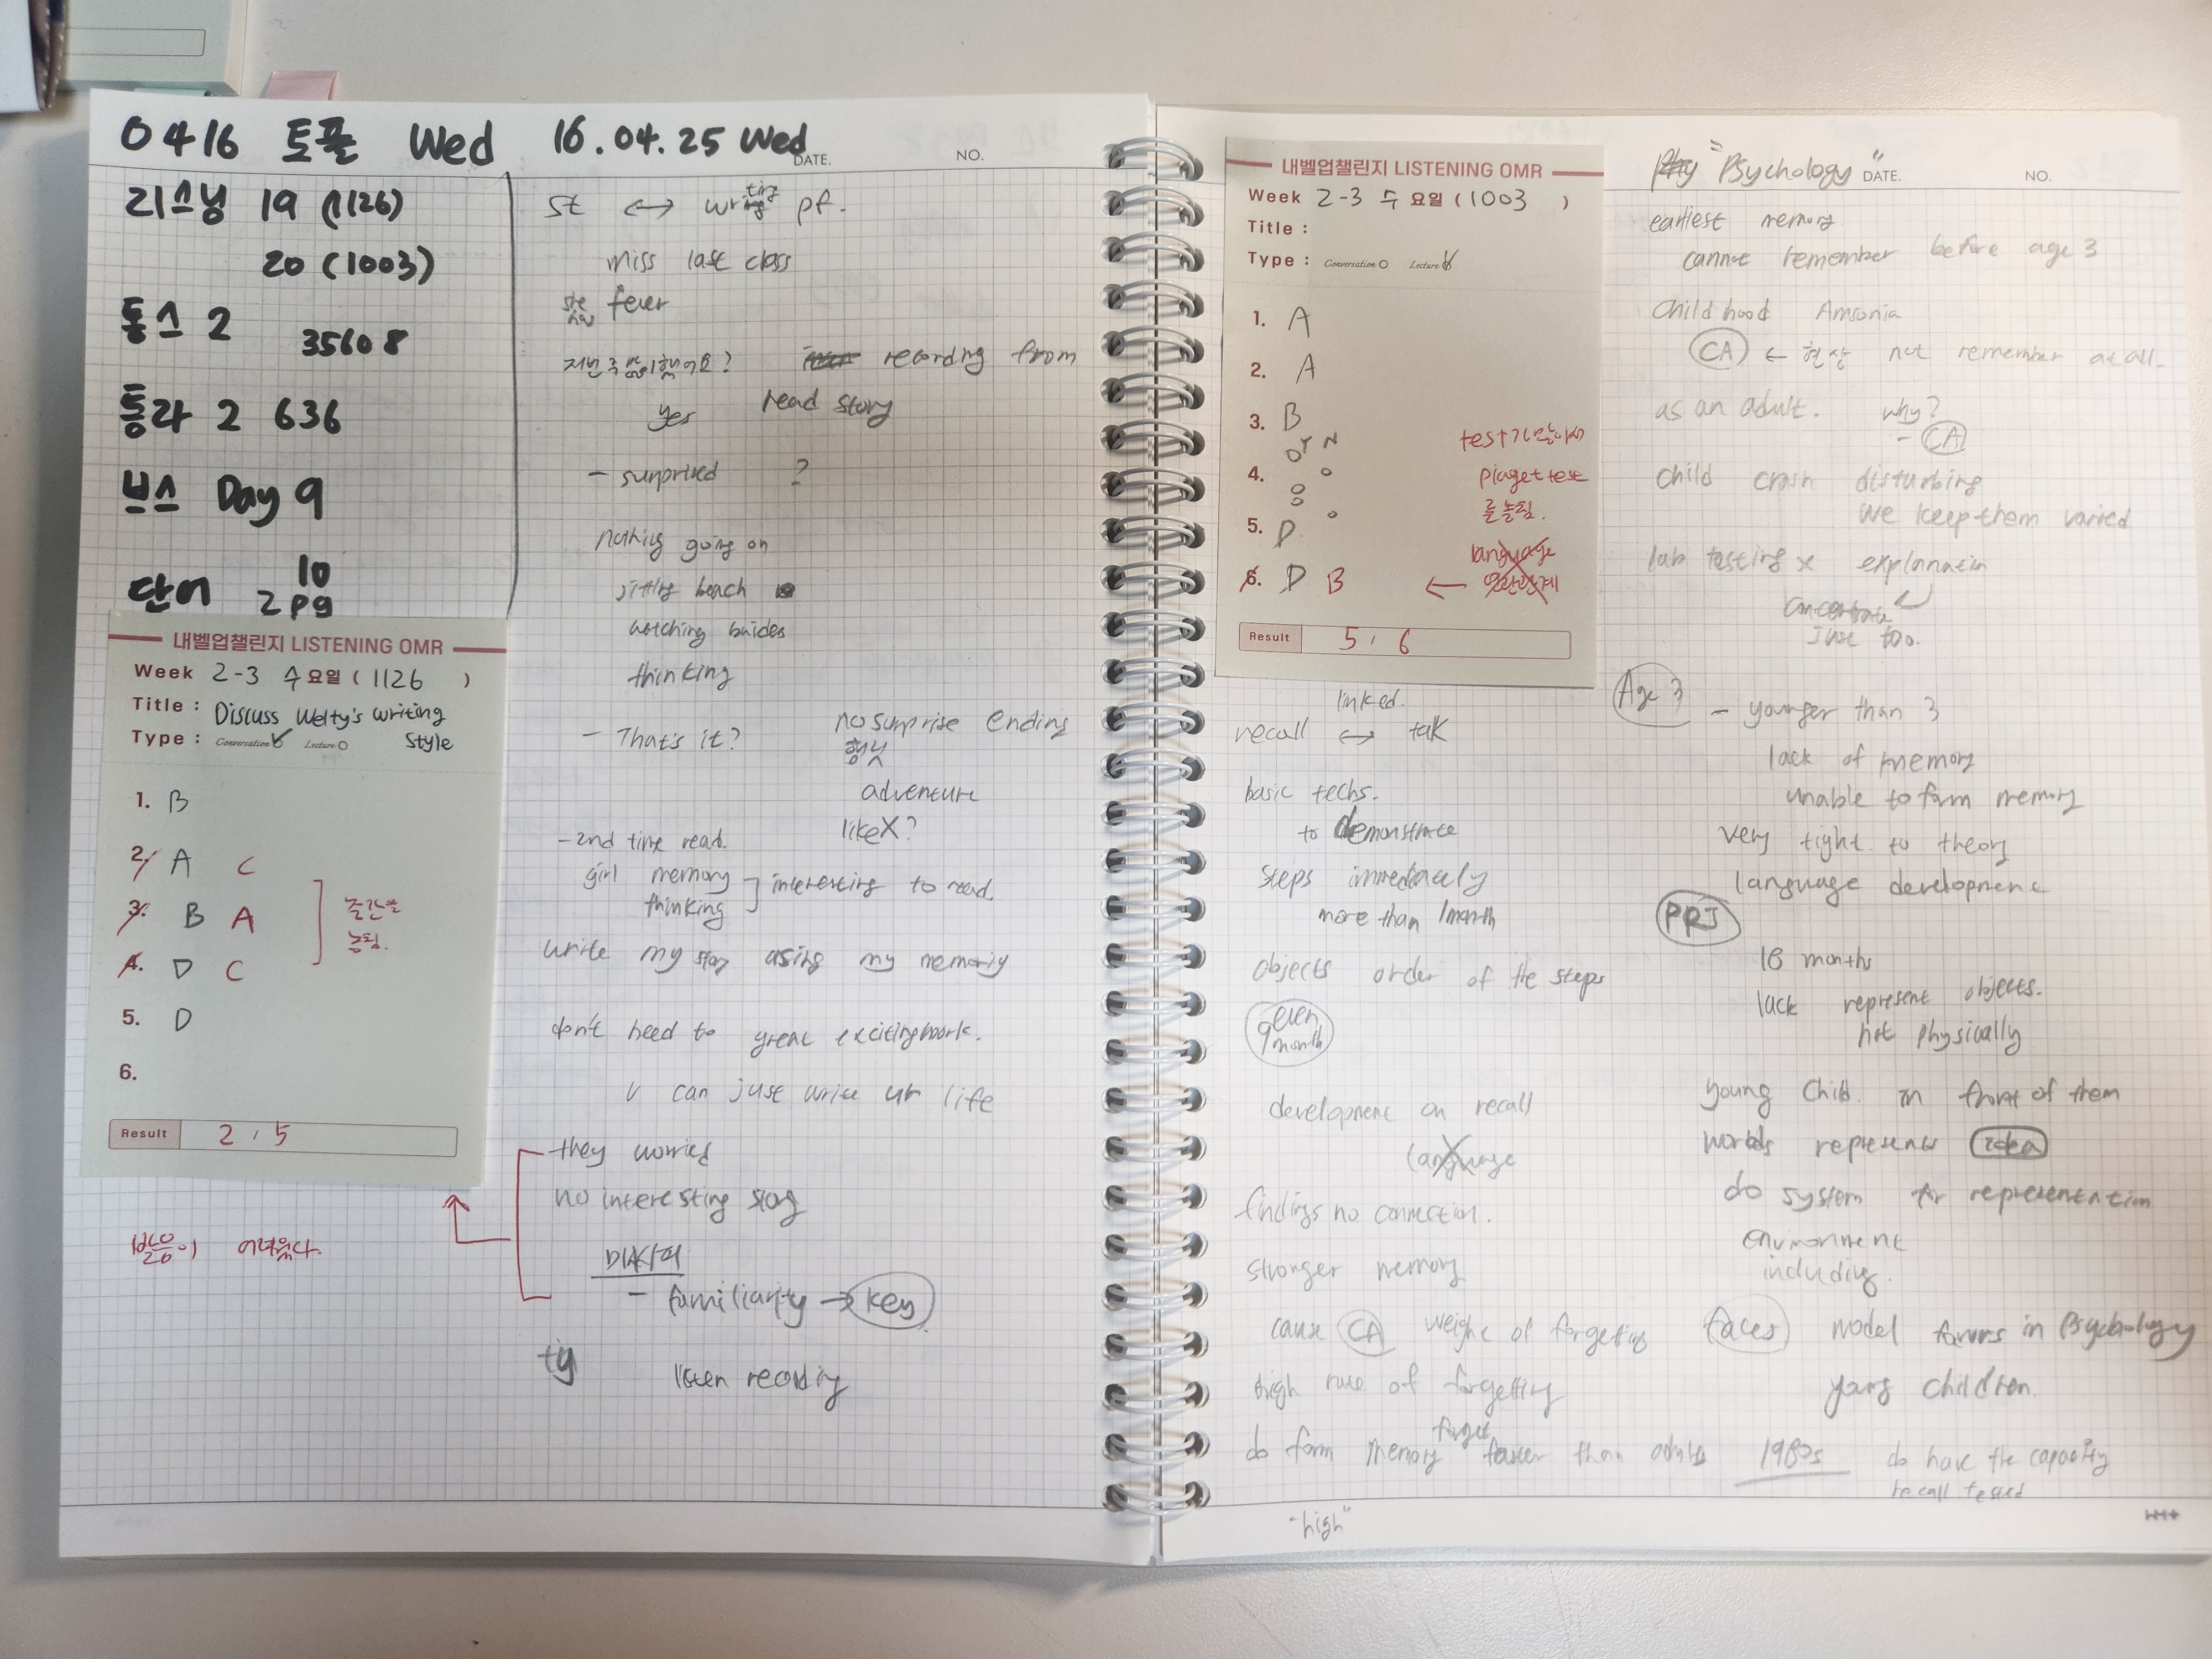 0416 토플 Wed 16.04.25 Wed
DATE. NO.
리스닝 19 (1126)
20 (1003)
통스 2 35608
통라 2 636
브스 Day 9
단어 10
2pg
내벨업챌린지 LISTENING OMR
Week 2-3 수 요일 ( 1126 )
Title : Discuss Welty's writing
Style
Type : Conversation Lecture
1. B
2. A C
3. B A
4. D C
중간을
놓침.
5. D
6.
Result 2 / 5
발음이 어려웠다.
St ↔ writing pf.
miss last class
fever
recording from
yes read story
- surprised ?
nothing going on
sitting beach
watching
thinking
- That's it? no surprise ending
adventure
like X?
- 2nd time read.
girl memory
thinking
interesting to read.
write my story using my memory
don't need to great exciting work.
u can just write ur life
they worried
no interesting story
- familiarity → key
ty
listen recording
내벨업챌린지 LISTENING OMR
Week 2-3 수 요일 ( 1003 )
Title :
Type : Conversation Lecture
1. A
2. A
3. B
Y N
4.
5. D
6. D B ←
piaget test
를 놓침.
language
Result 5 / 6
linked.
recall ↔ talk
basic techs.
to demonstrate
steps immediately
more than 1 month
objects order of the steps
even
9 month
development on recall
language
findings no connection.
stronger memory
cause CA weight of forgetting
high rate of forgetting
forget
do form memory faster than adults
"high"
"Psychology" DATE. NO.
earliest memory
cannot remember before age 3
Childhood Amsonia
CA ← 현상 not remember at all.
as an adult. why?
- CA
child crash disturbing
we keep them varied
lab testing x explanation
concentrate
just too.
Age 3
- younger than 3
lack of memory
unable to form memory
very tight to theory
language development
PRJ
18 months
lack represent objects.
not physically
young child. in front of them
words represents idea
do system for representation
environment
including.
faces model forms in Psychology
young children.
1980s do have the capacity
recall tested